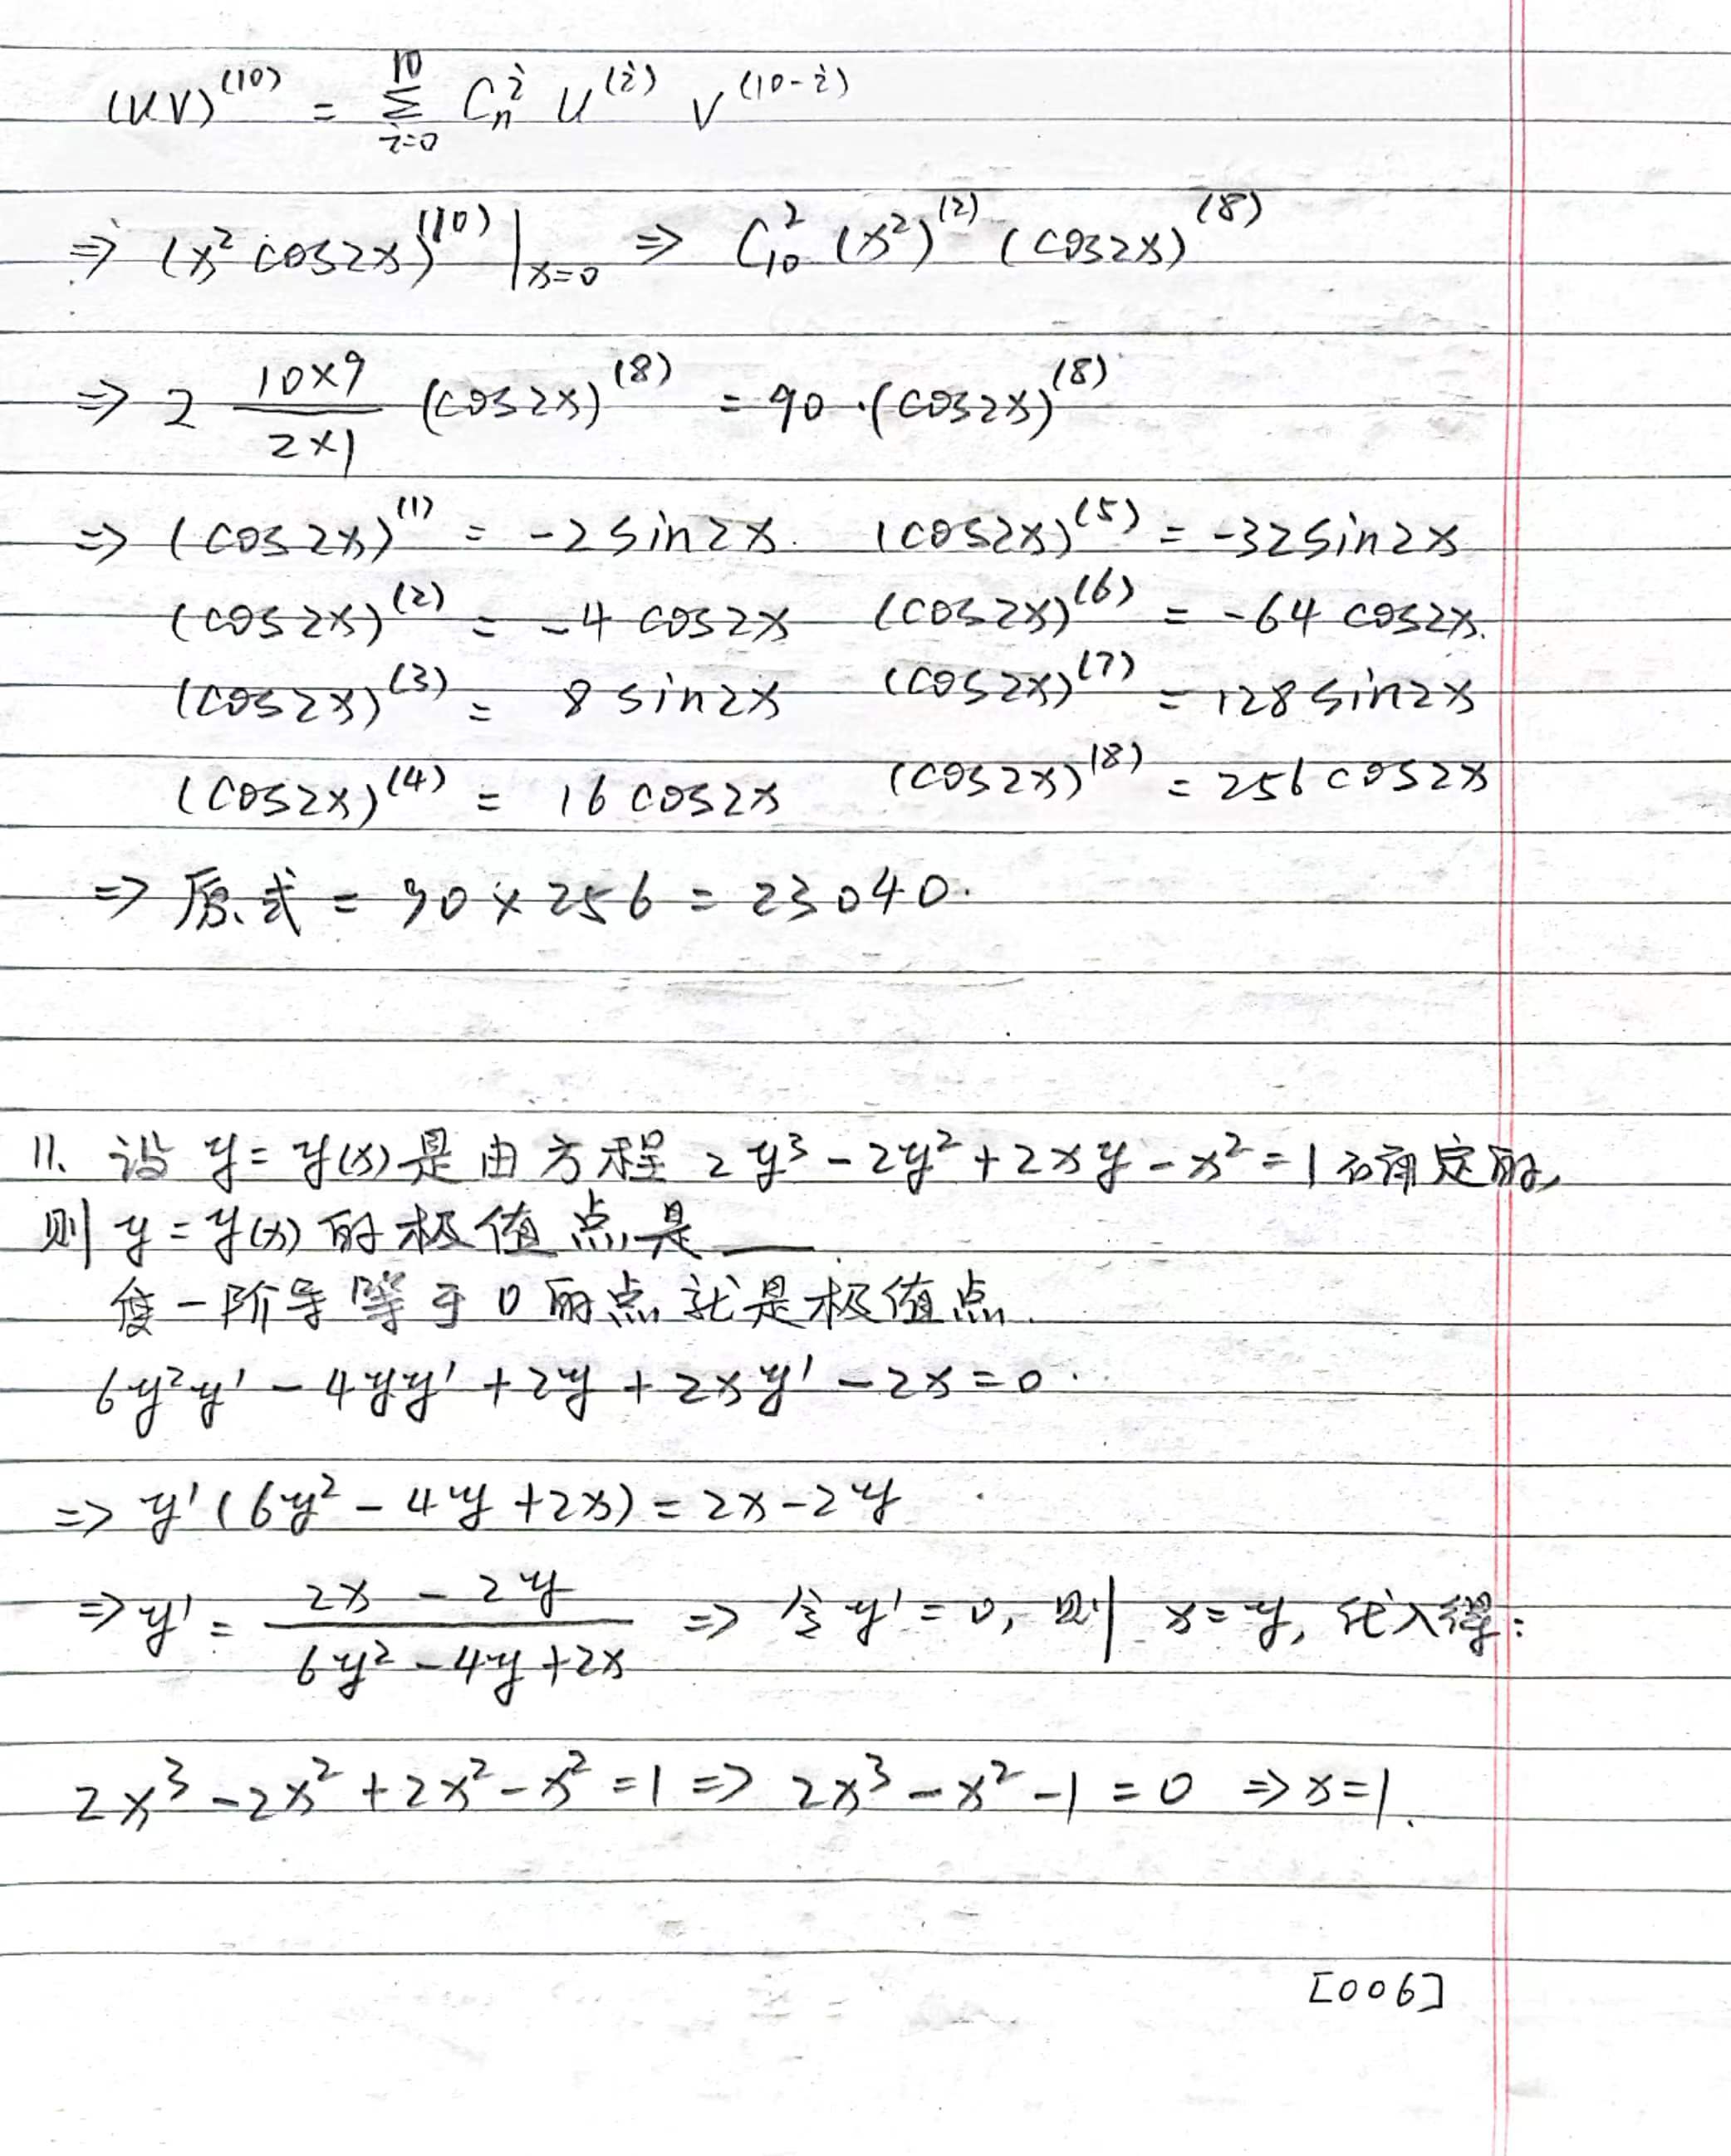 (uv)^(10) = Σ_{i=0}^{10} C_n^i u^(i) v^(10-i)
⇒ (x² cos2x)^(10) |_{x=0} ⇒ C_10^2 (x²)^(2) (cos2x)^(8)
⇒ 2 (10×9)/(2×1) (cos2x)^(8) = 90·(cos2x)^(8)
⇒ (cos2x)^(1) = -2sin2x. (cos2x)^(5) = -32sin2x
(cos2x)^(2) = -4cos2x (cos2x)^(6) = -64cos2x.
(cos2x)^(3) = 8sin2x (cos2x)^(7) = 128sin2x
(cos2x)^(4) = 16cos2x (cos2x)^(8) = 256cos2x
⇒ 原式 = 90×256 = 23040.
11. 设 y=y(x) 是由方程 2y³-2y²+2xy-x²=1 确定的,
则 y=y(x) 的极值点是 ___.
使一阶导等于0的点就是极值点.
6y²y' - 4yy' + 2y + 2xy' - 2x = 0.
⇒ y'(6y²-4y+2x) = 2x-2y
⇒ y' = (2x-2y)/(6y²-4y+2x) ⇒ 令 y'=0, 则 x=y, 代入得:
2x³-2x²+2x²-x²=1 ⇒ 2x³-x²-1=0 ⇒ x=1.
[006]